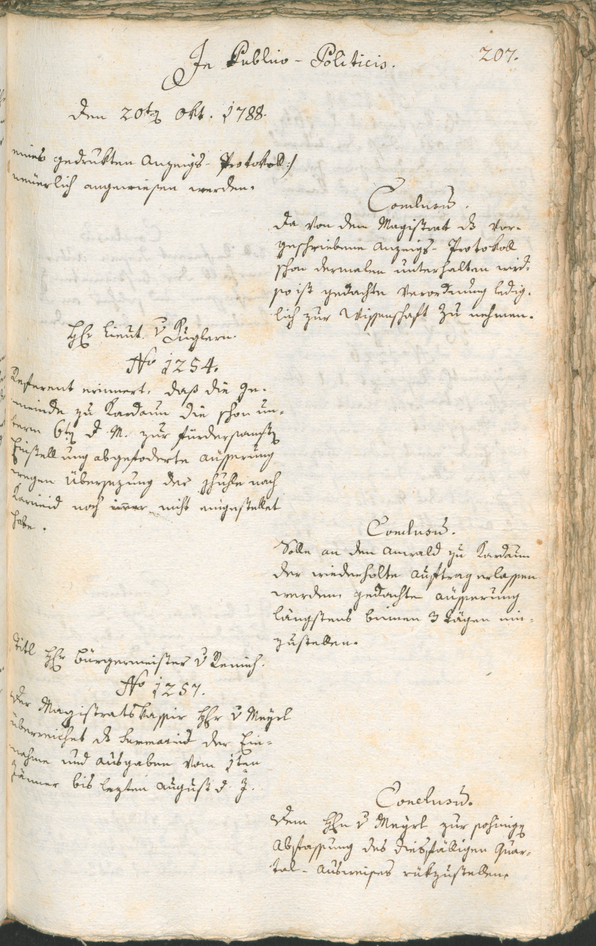 In Publico-Politicis.
207.
Den 20ten Okt. 1788.
eines gedrukten Anzeigs-Protokol:/
neuerlich angewiesen werden.
Conclusum.
Da von dem Magistrat das vor-
geschriebene Anzeigs-Protokol
schon dermalen unterhalten wird,
so ist gedachte Verordnung ledig-
lich zur Wissenschaft zu nehmen.
Hr Lieut. v
No 1254.
Referent erinnert, daß die Ge-
meinde zu Kardaun die schon un-
term 6ten d. M. zur
Einstellung abgefoderte Äusserung
wegen Übersezung der Schule nach
Karneid noch immer nicht eingestellet
habe.
Conclusum.
Solle an den Anwald zu Kardaun
der wiederholte Auftrag erlassen
werden, gedachte Äusserung
längstens binnen 3 Tägen ein-
zustellen.
Titl Hr Bürgermeister v
No 1257.
Der Magistratskassier Hr v Mayrl
überreichet das Summarium der Ein-
nahme und Ausgaben vom 1ten
Jänner bis lezten August d. J.
Conclusum.
Dem Hrn v Mayrl zur
Abfassung des diesfälligen Quar-
tal-Ausweises rükzustellen.